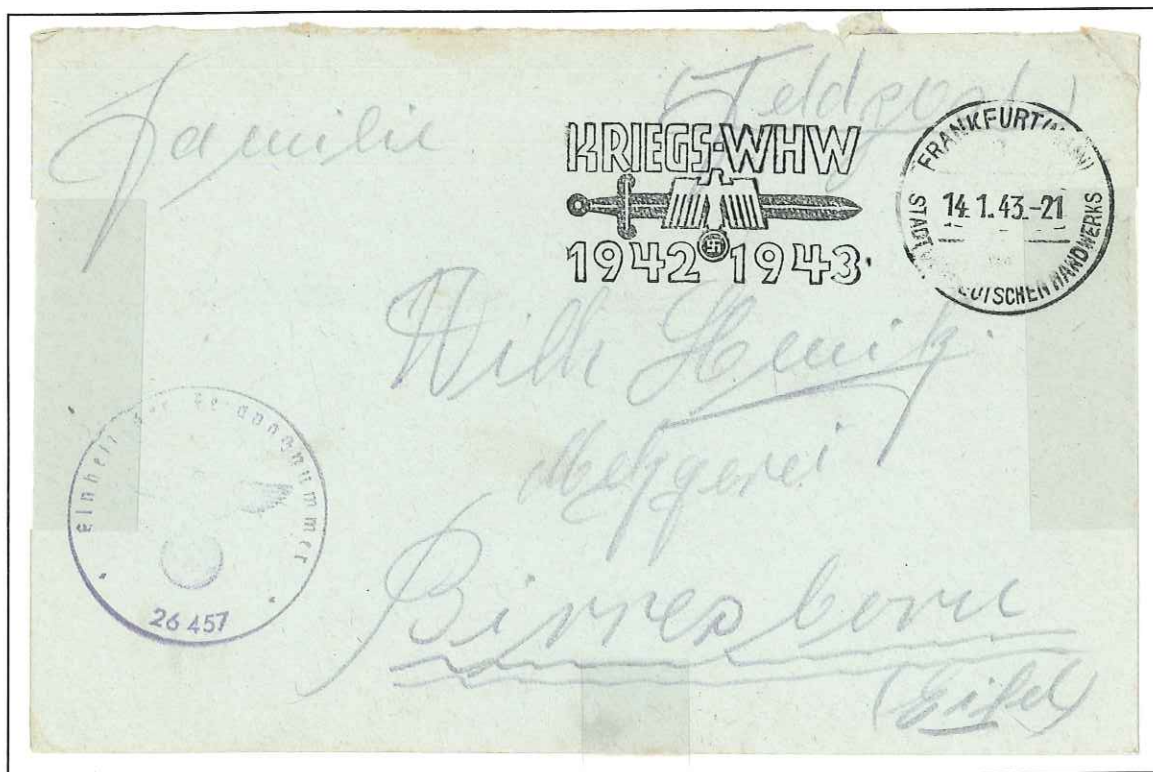 Familie
Feldpost
KRIEGS-WHW
1942 1943
FRANKFURT (MAIN)
14.1.43.-21
STADT DES DEUTSCHEN HANDWERKS
Wilh
Metzgerei
Birresborn
(Eifel)
Einheit der Feldpostnummer
26 457